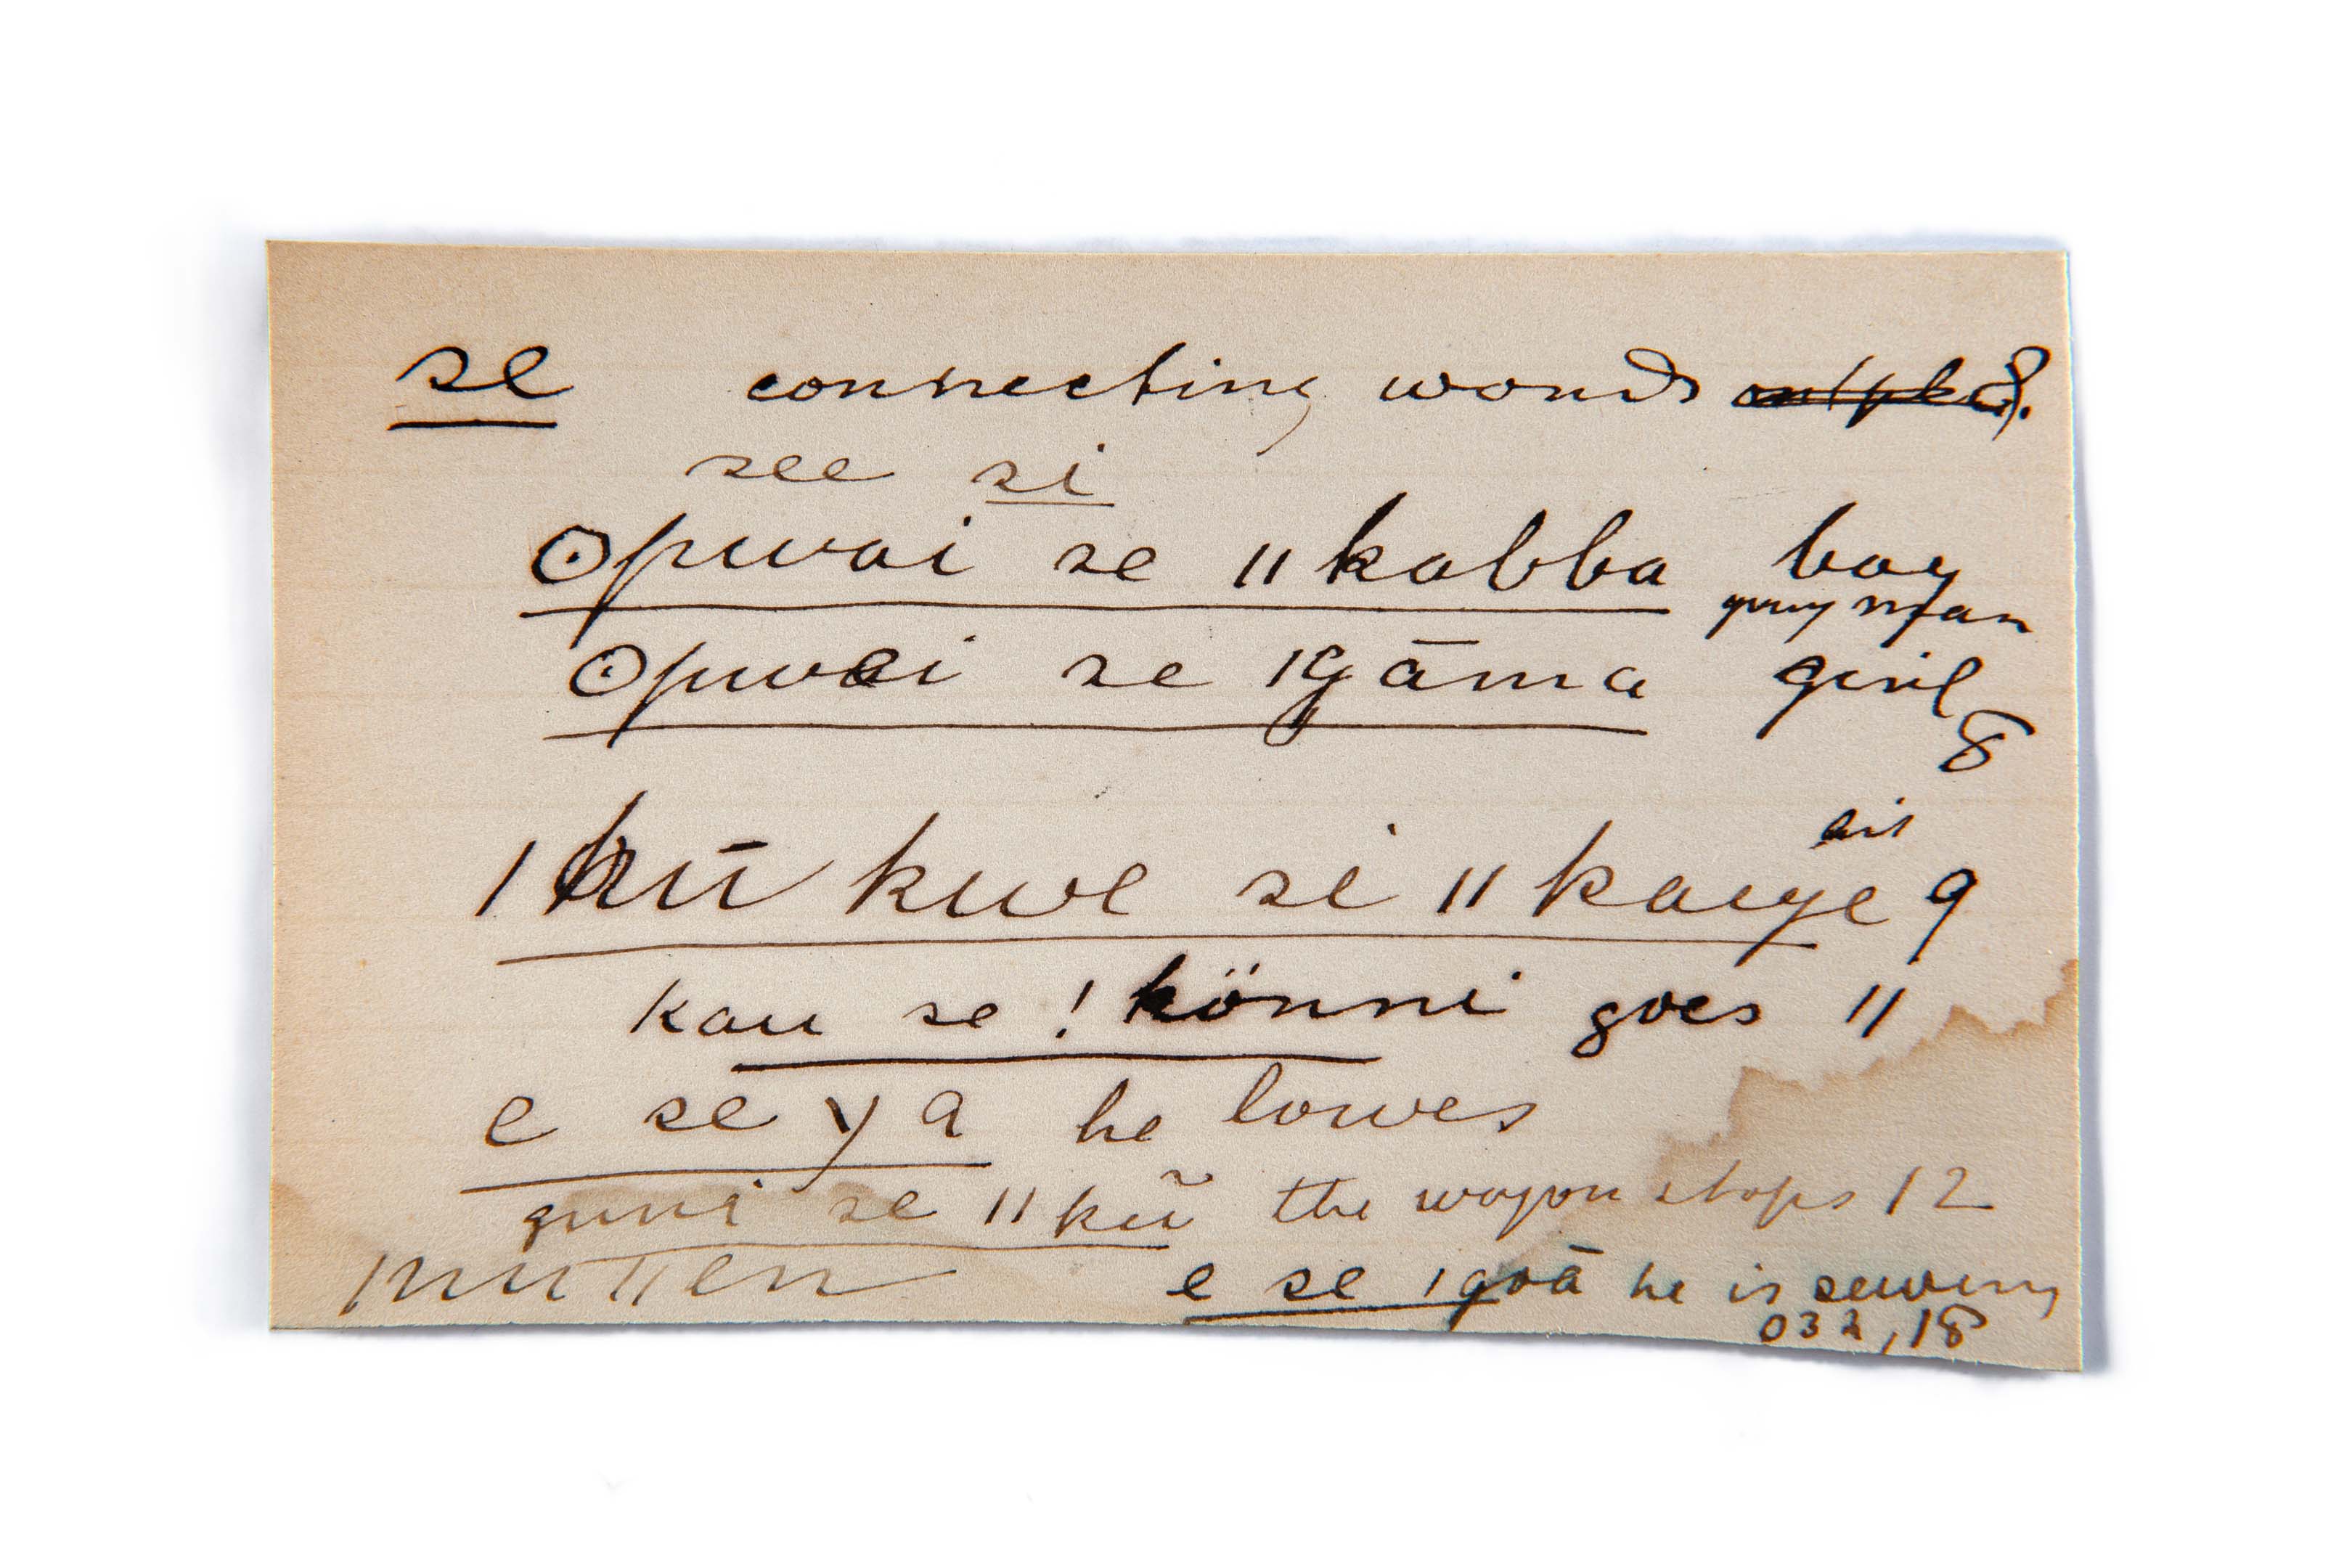 se connecting words 8.
see si
ʘpwai se ǁkabba boy
young man
ʘpwai se ǀgāma girl
8
ǀhūkwe si ǁkaiye 9
kau se !könni goes 11
e se ya he lowes
guni se ǁkũ the wagon stops 12
e se ǀgoā he is sewing
032, 18